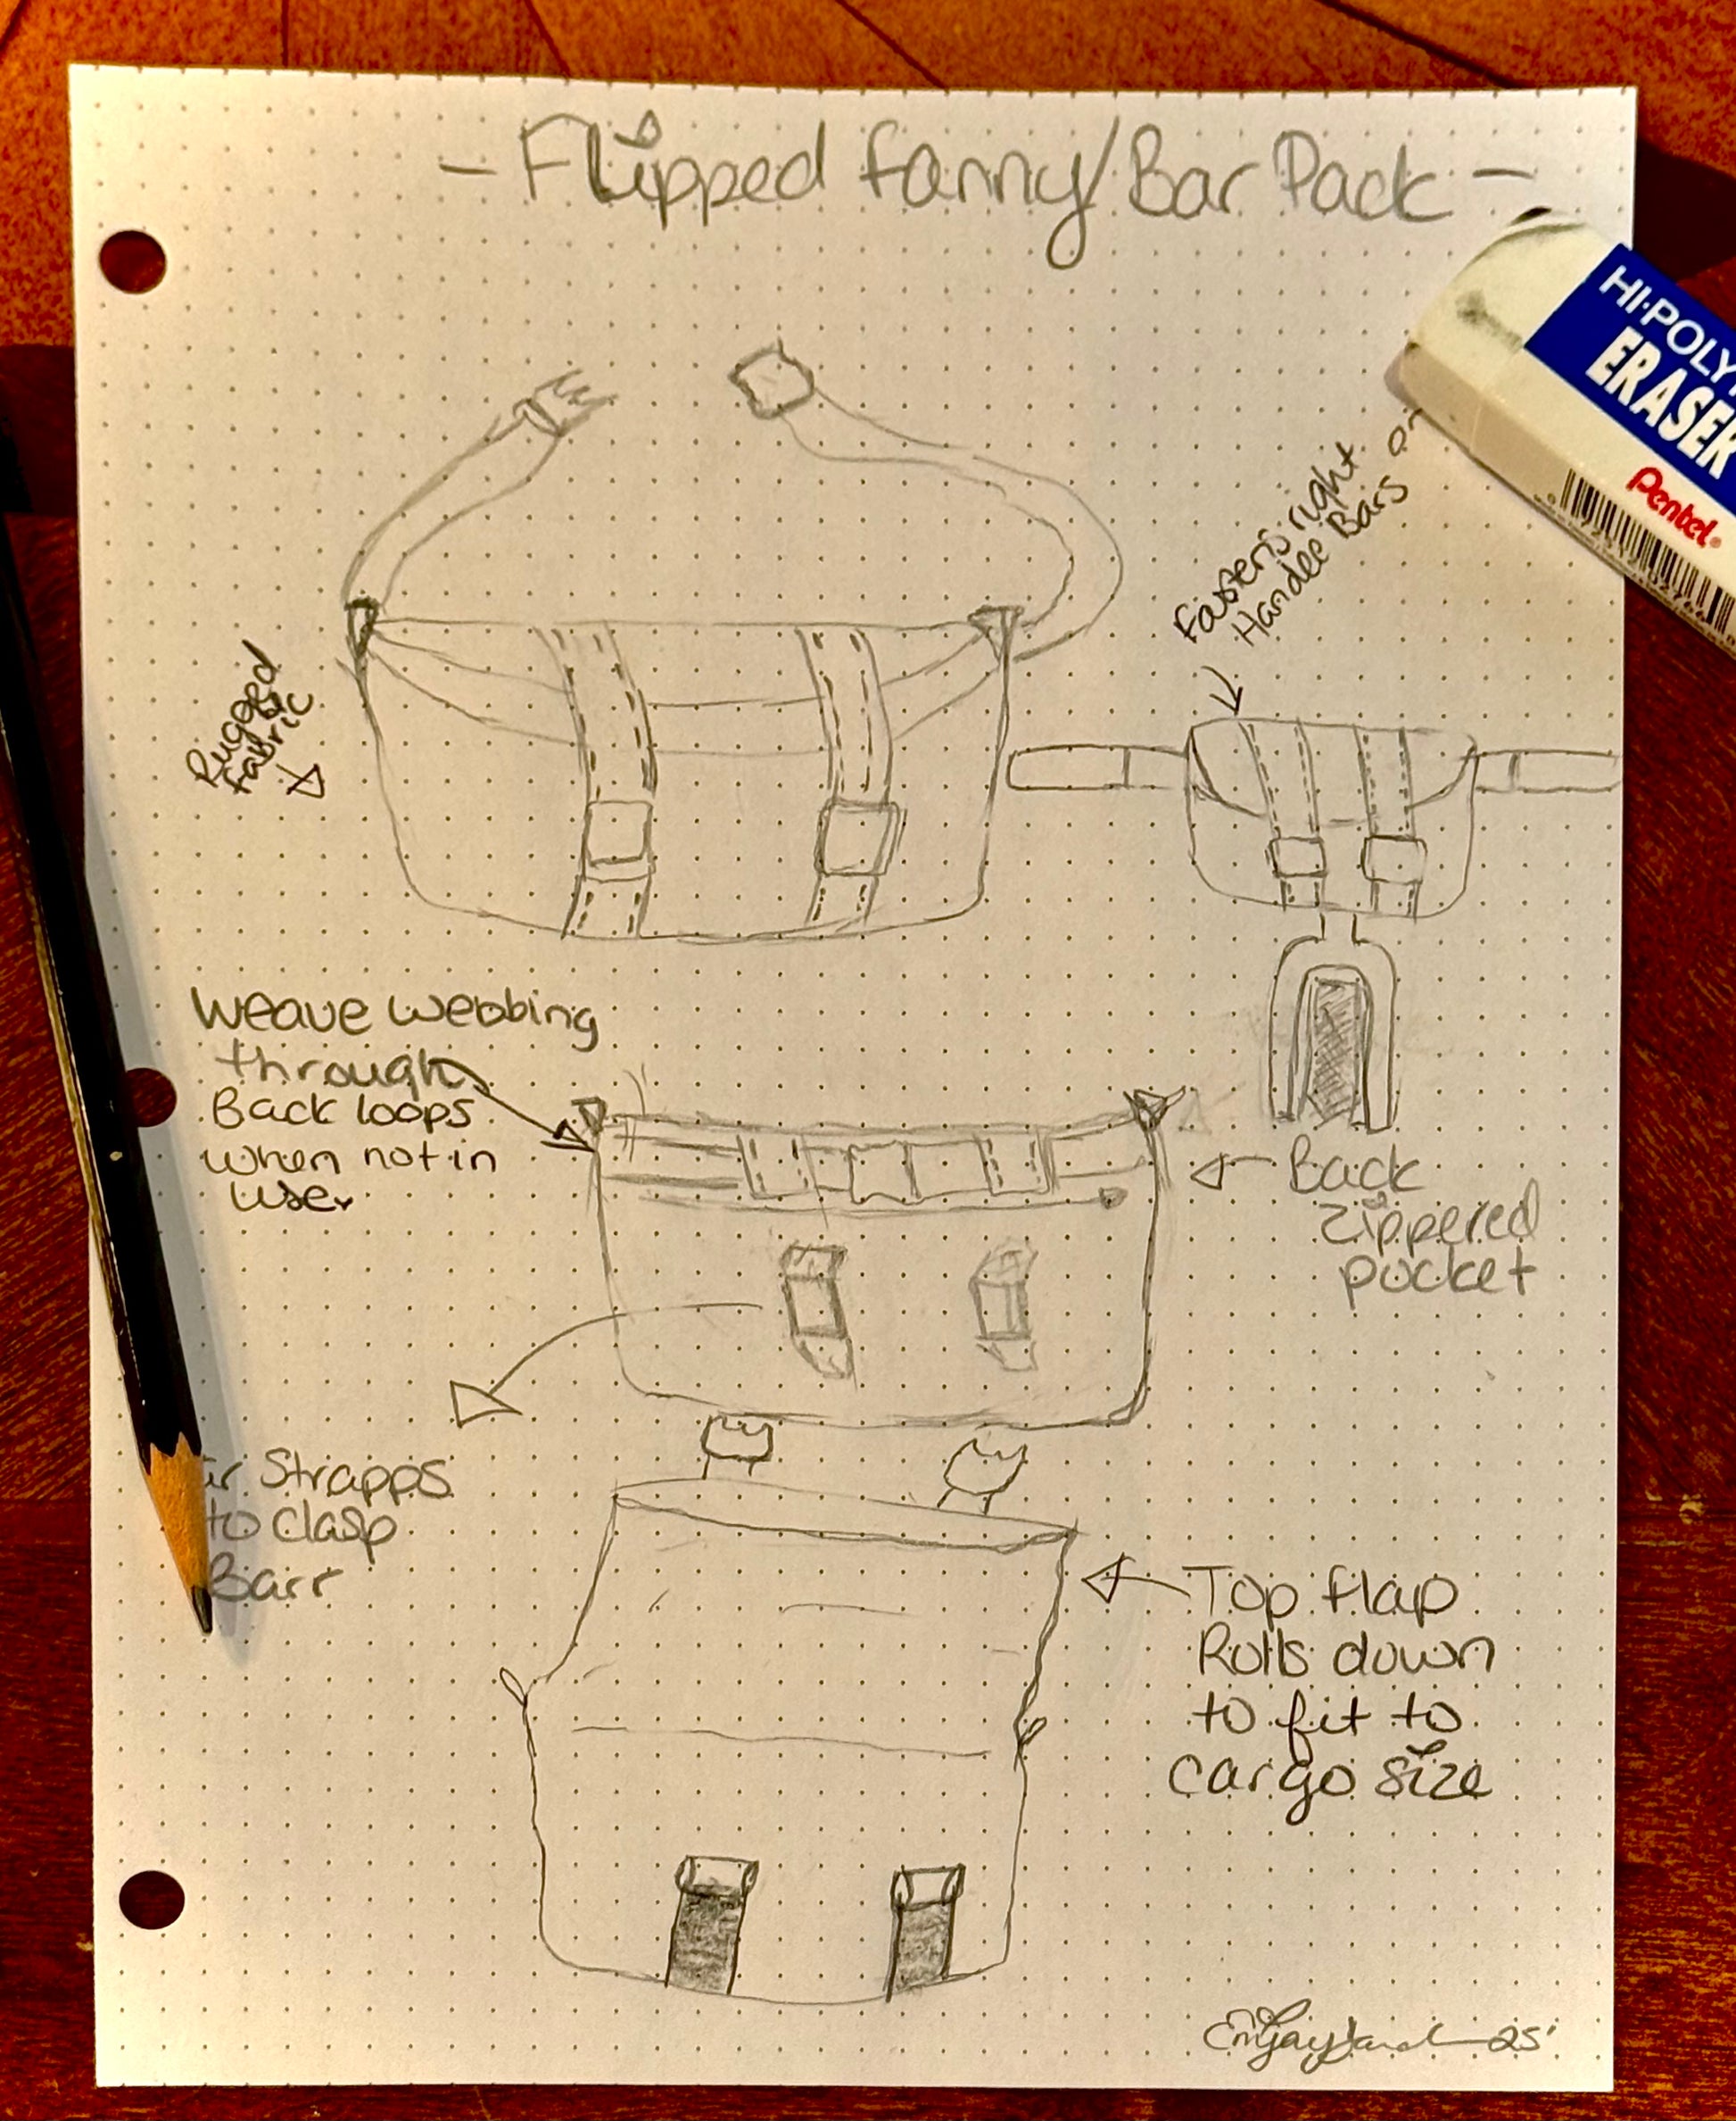 - Flipped Fanny/Bar Pack -
HI-POLY
ERASER
Pentel
Fastens right on
Handle Bars
Rugged
Fabric
Weave webbing
through
Back loops
when not in
use
Back
Zippered
pocket
Strapps
to Clasp
Barr
Top flap
Rolls down
to fit to
cargo size
25'